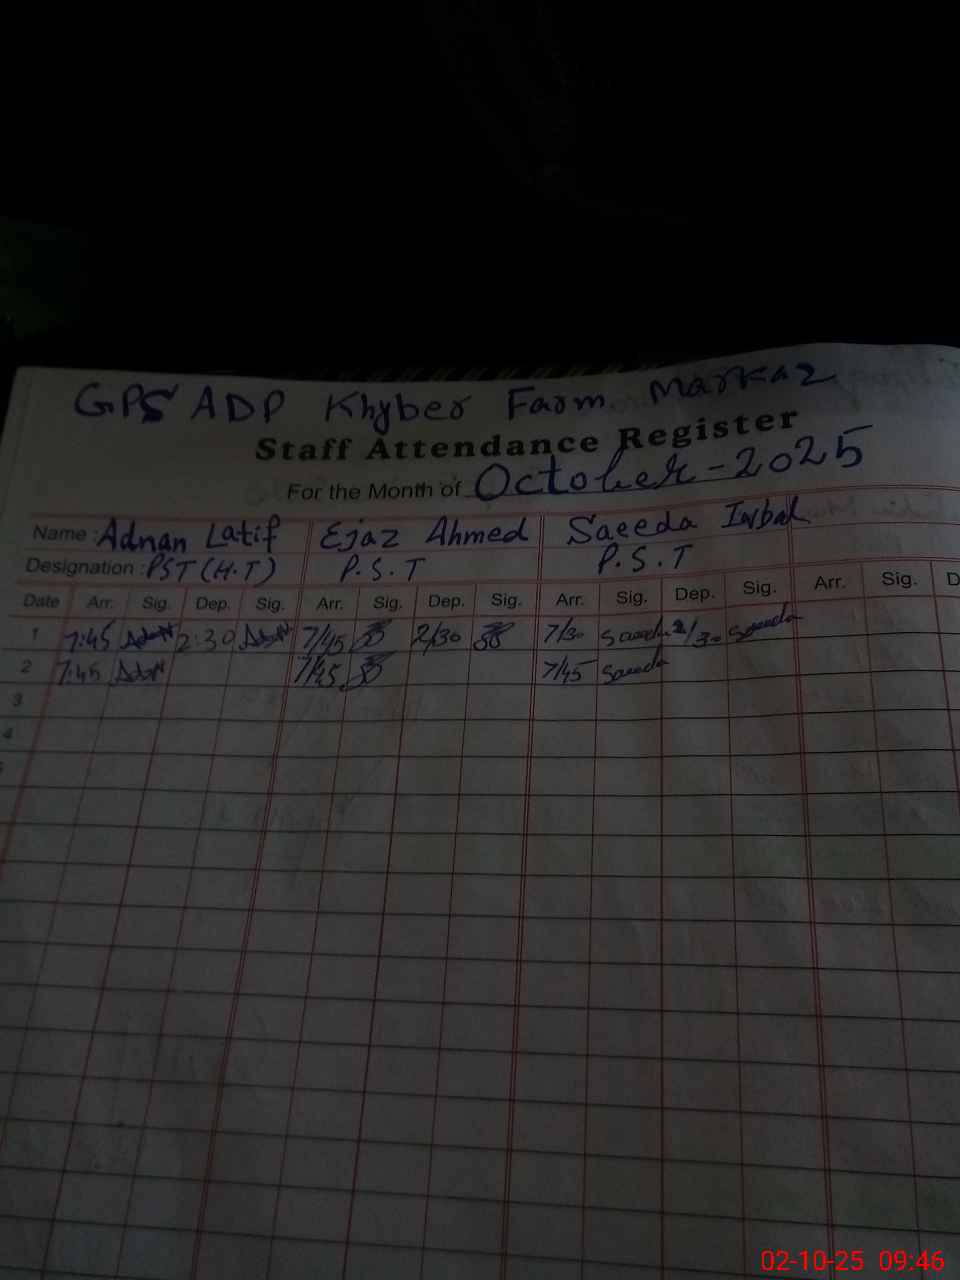 GPS ADP Khyber Farm Markaz
Staff Attendance Register
For the Month of October-2025
Name: Adnan Latif Ejaz Ahmed Saeeda Iqbal
Designation: PST (H.T) P.S.T P.S.T
Date Arr. Sig. Dep. Sig. Arr. Sig. Dep. Sig. Arr. Sig. Dep. Sig. Arr. Sig. D
1 7:45 2:30 7/45 2/30 7/30 Saeeda 2/30 Saeeda
2 7:45 7/45 7/45 Saeeda
3
4
5
02-10-25 09:46